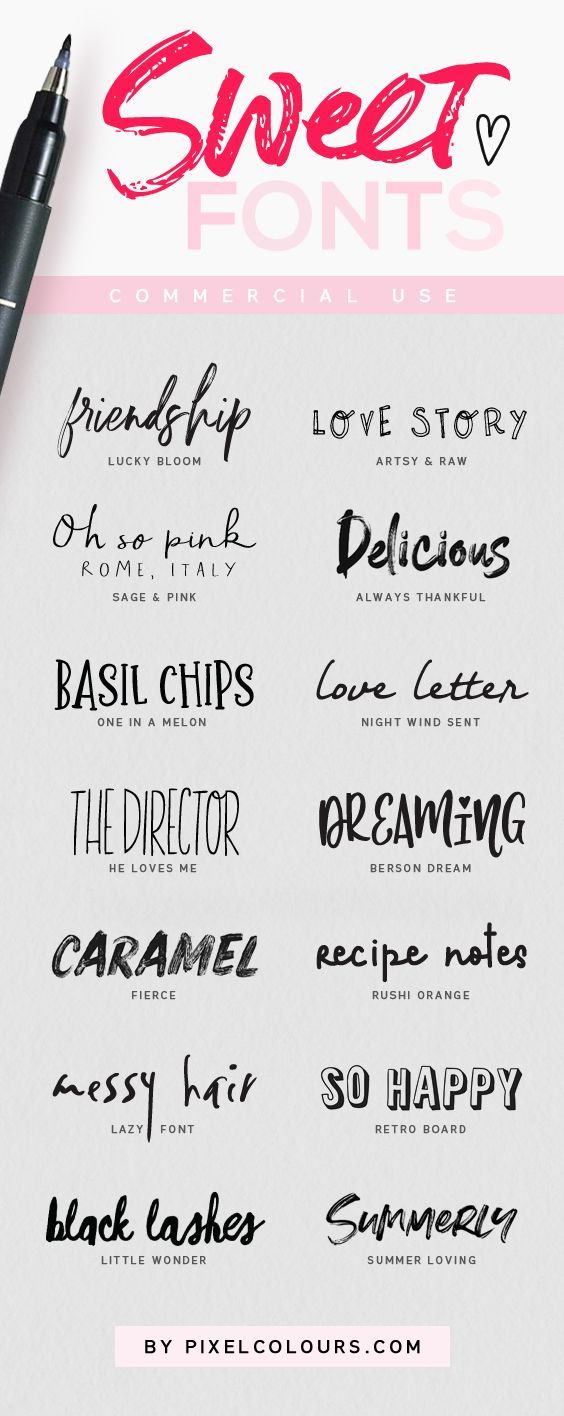 Sweet
FONTS
COMMERCIAL USE
friendship
LUCKY BLOOM
LOVE STORY
ARTSY & RAW
Oh so pink
ROME, ITALY
SAGE & PINK
Delicious
ALWAYS THANKFUL
BASIL CHIPS
ONE IN A MELON
love letter
NIGHT WIND SENT
THE DIRECTOR
HE LOVES ME
DREAMING
BERSON DREAM
CARAMEL
FIERCE
recipe notes
RUSHI ORANGE
messy hair
LAZY FONT
SO HAPPY
RETRO BOARD
black lashes
LITTLE WONDER
Summerly
SUMMER LOVING
BY PIXELCOLOURS.COM